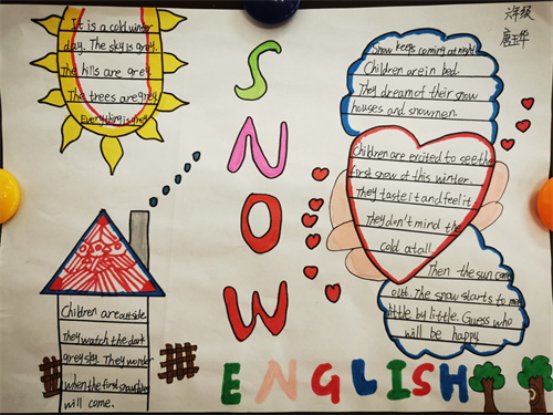 It is a cold winter
day. The sky is grey.
The hills are grey.
The trees are grey.
Everything is grey.
Children are outside.
They watch the dark
grey sky. They wonder
when the first snowflakes
will come.
SNOW
ENGLISH
六年级
Snow keeps coming at night.
Children are in bed.
They dream of their snow
houses and snowmen.
Children are excited to see the
first snow of this winter.
They taste it and feel it.
They don't mind the
cold at all.
Then the sun comes
out. The snow starts to melt
little by little. Guess who
will be happy.